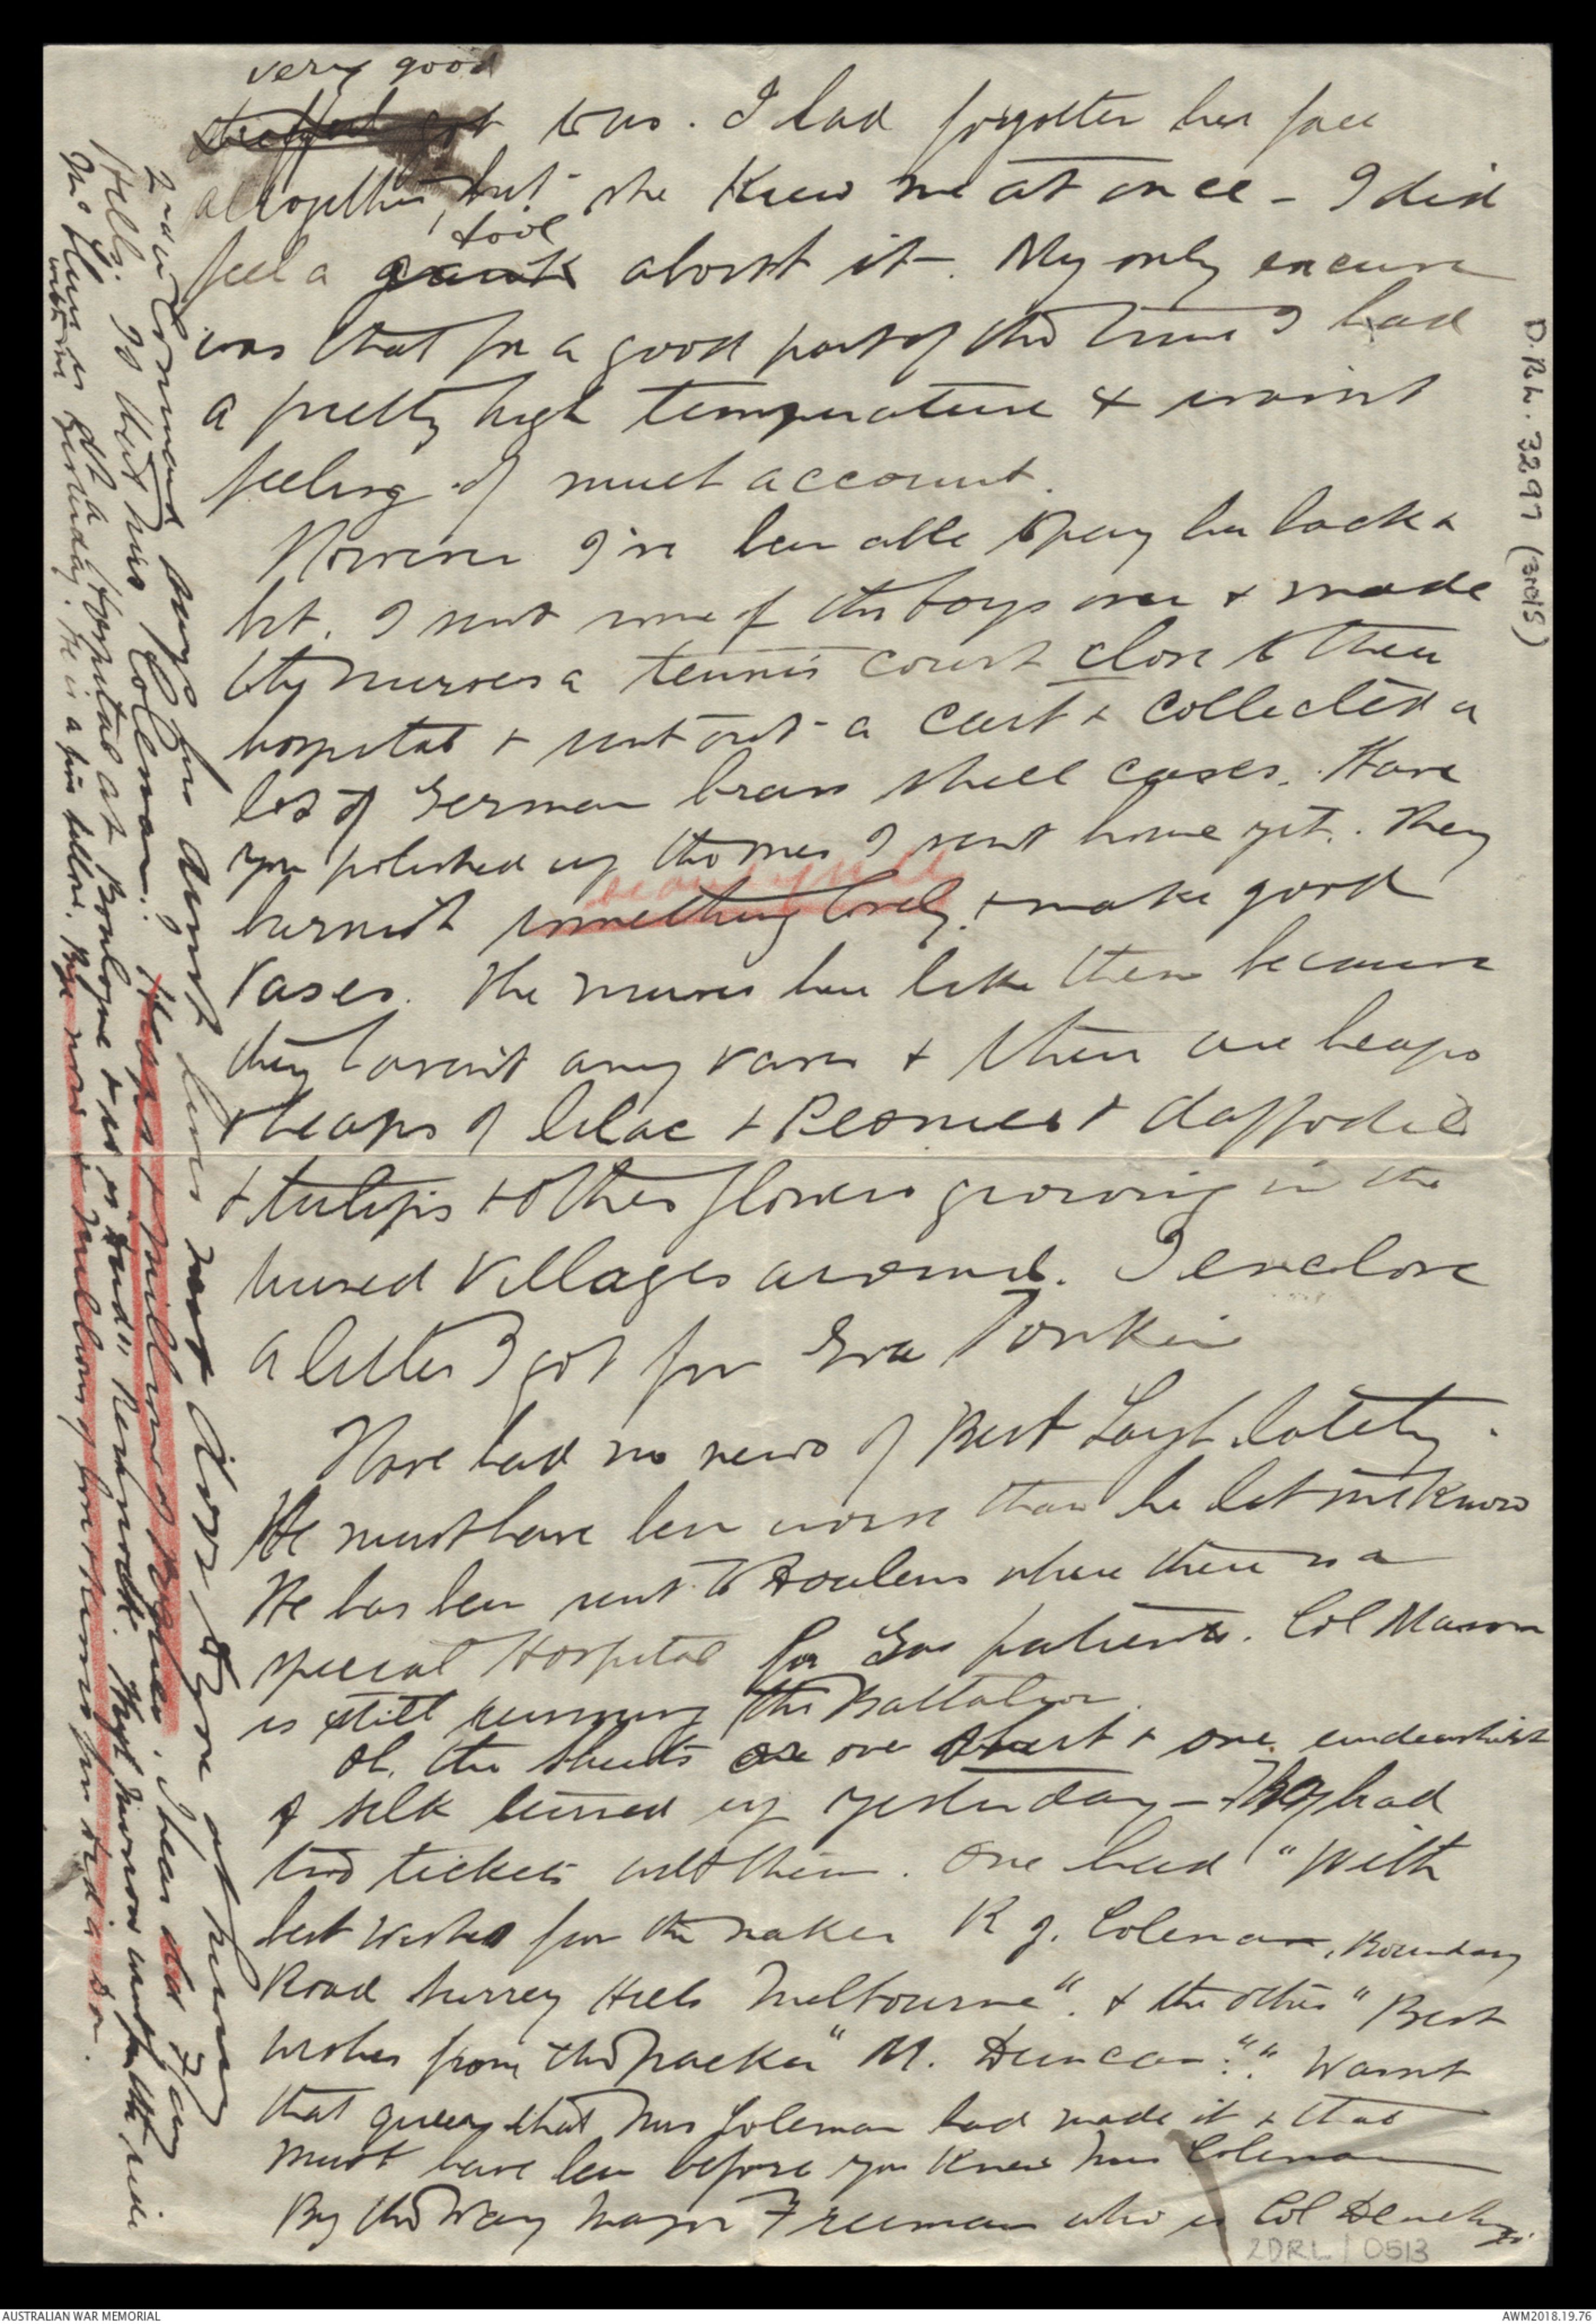 very good
was. I had forgotten her face
altogether, but she knew me at once - I did
fool
feel a about it. My only excuse
was that for a good part of the time I had
a pretty high temperature & wasn't
feeling of much account.
However I've been able to pay her back a
bit. I sent some of the boys over & made
the nurses a tennis court close to their
hospital & sent out a cart & collected a
lot of German brass shell cases. Have
you polished up the ones I sent home yet. They
beautifully
burnish something lovely & make good
vases. The nurses here like them because
they haven't any vases & there are heaps
& heaps of lilac & Peonies & daffodils
& tulips & other flowers growing in the
ruined villages around. I enclose
a letter I got from Eva Tonkin
Have had no news of Bert Layh lately.
He must have been worse than he let me know
He has been sent to Doulens where there is a
special Hospital for Gas patients. Col Mason
is still running the Battalion.
Oh, the sheets one & one undershirt
of silk turned up yesterday - They had
two tickets with them. One had "With
best wishes from the maker R J. Coleman, Boundary
Road Surrey Hills Melbourne". & the other "Best
wishes from the packer" M. Duncan."" Wasn't
that queer that Mrs Coleman had made it & that
must have been before you knew Mrs Coleman
By the Way Major Freeman who is Col Denehy's
2nd in Command says his Aunt lives next door to you at Surrey
Hills. I'd bet he's Coleman. Heaps & millions of kisses. I hear that Fay
McFlurr is at a Hospital at Boulogne & is as "Mad" Kenworth. Hugh Murrow went for a ride
with me yesterday. He is a fine fellow. Bye now & millions of love & kisses from old dad on.
D.R.L. 3297 (3rd S)
2DRL/0513
AUSTRALIAN WAR MEMORIAL
AWM2018.19.76